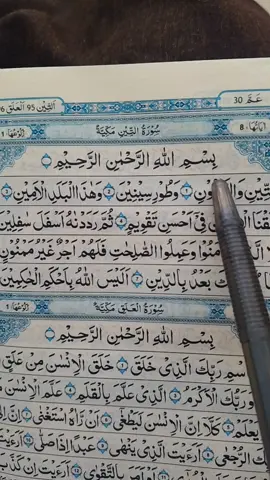 عَمَّ 30
اَلتِّيْن 95 اَلْعَلَق 96
سُوْرَةُ التِّيْنِ مَكِّيَّةٌ
بِسْمِ اللّٰهِ الرَّحْمٰنِ الرَّحِيْمِ
وَطُوْرِ سِيْنِيْنَ وَهٰذَا الْبَلَدِ الْاَمِيْنِ
فِيْٓ اَحْسَنِ تَقْوِيْمٍ ثُمَّ رَدَدْنٰهُ اَسْفَلَ سٰفِلِيْنَ
وَعَمِلُوا الصّٰلِحٰتِ فَلَهُمْ اَجْرٌ غَيْرُ مَمْنُوْنٍ
بَعْدُ بِالدِّيْنِ اَلَيْسَ اللّٰهُ بِاَحْكَمِ الْحٰكِمِيْنَ
سُوْرَةُ الْعَلَقِ مَكِّيَّةٌ
بِسْمِ اللّٰهِ الرَّحْمٰنِ الرَّحِيْمِ
رَبِّكَ الَّذِيْ خَلَقَ خَلَقَ الْاِنْسَانَ مِنْ عَلَقٍ
رَبُّكَ الْاَكْرَمُ الَّذِيْ عَلَّمَ بِالْقَلَمِ عَلَّمَ الْاِنْسَانَ
يَعْلَمْ كَلَّآ اِنَّ الْاِنْسَانَ لَيَطْغٰٓى اَنْ رَّاٰهُ اسْتَغْنٰى
الرُّجْعٰى اَرَءَيْتَ الَّذِيْ يَنْهٰى عَبْدًا اِذَا صَلّٰى
اَمَرَ بِالتَّقْوٰى اَرَءَيْتَ اِنْ كَذَّبَ